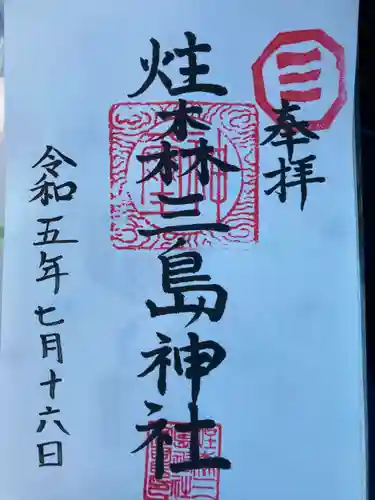 奉拝
烓森三島神社
令和五年七月十六日